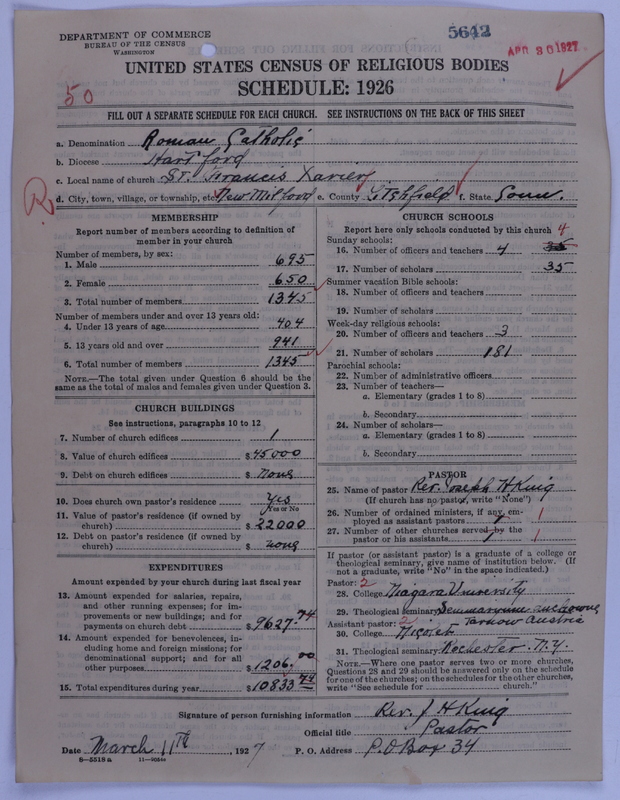 DEPARTMENT OF COMMERCE
BUREAU OF THE CENSUS
WASHINGTON
5642
APR 30 1927
UNITED STATES CENSUS OF RELIGIOUS BODIES
SCHEDULE: 1926
50
FILL OUT A SEPARATE SCHEDULE FOR EACH CHURCH. SEE INSTRUCTIONS ON THE BACK OF THIS SHEET
a. Denomination Roman Catholic
b. Diocese Hartford
c. Local name of church St. Francis Xavier
R
d. City, town, village, or township, etc. New Milford e. County Litchfield f. State Conn.
MEMBERSHIP
Report number of members according to definition of member in your church
Number of members, by sex:
1. Male 695
2. Female 650
3. Total number of members 1345
Number of members under and over 13 years old:
4. Under 13 years of age 404
5. 13 years old and over 941
6. Total number of members 1345
NOTE.—The total given under Question 6 should be the
same as the total of males and females given under Question 3.
CHURCH BUILDINGS
See instructions, paragraphs 10 to 12
7. Number of church edifices 1
8. Value of church edifices $ 45000
9. Debt on church edifices $ none
10. Does church own pastor's residence Yes
Yes or No
11. Value of pastor's residence (if owned by
church) $ 22000
12. Debt on pastor's residence (if owned by
church) $ none
EXPENDITURES
Amount expended by your church during last fiscal year
13. Amount expended for salaries, repairs,
and other running expenses; for im-
provements or new buildings; and for
payments on church debt $ 9627.74
14. Amount expended for benevolences, in-
cluding home and foreign missions; for
denominational support; and for all
other purposes $ 1206.00
15. Total expenditures during year $ 10833.74
CHURCH SCHOOLS
Report here only schools conducted by this church
4
Sunday schools:
16. Number of officers and teachers 4 35
17. Number of scholars 35
Summer vacation Bible schools:
18. Number of officers and teachers
19. Number of scholars
Week-day religious schools:
20. Number of officers and teachers 3
21. Number of scholars 181
Parochial schools:
22. Number of administrative officers
23. Number of teachers—
a. Elementary (grades 1 to 8)
b. Secondary
24. Number of scholars—
a. Elementary (grades 1 to 8)
b. Secondary
PASTOR
25. Name of pastor Rev. Joseph H King
(If church has no pastor, write "None")
26. Number of ordained ministers, if any, em-
ployed as assistant pastors 1 1
27. Number of other churches served by the
pastor or his assistants 1 1
If pastor (or assistant pastor) is a graduate of a college or
theological seminary, give name of institution below. (If
not a graduate, write "No" in the space indicated.)
Pastor: 2
28. College Niagara University
29. Theological seminary Seminarium
Tarnow Austria
Assistant pastor: 2
30. College
31. Theological seminary Rochester N.Y.
NOTE.—Where one pastor serves two or more churches,
Questions 28 and 29 should be answered only on the schedule
for one of the churches; on the schedules for the other churches,
write "See schedule for church."
Signature of person furnishing information Rev. J H King
Official title Pastor
Date March 11th, 1927 P. O. Address P.O Box 34
8—5518a 11—9034c